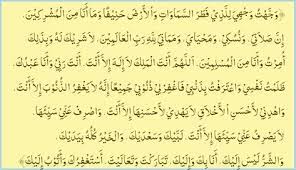 ﴿وَجَّهْتُ وَجْهِيَ لِلَّذِي فَطَرَ السَّمَاوَاتِ وَالْأَرْضَ حَنِيفًا وَمَا أَنَا مِنَ الْمُشْرِكِينَ.
إِنَّ صَلَاتِي، وَنُسُكِي، وَمَحْيَايَ، وَمَمَاتِي لِلَّهِ رَبِّ الْعَالَمِينَ. لَا شَرِيكَ لَهُ وَبِذَلِكَ
أُمِرْتُ وَأَنَا مِنَ الْمُسْلِمِينَ. اللَّهُمَّ أَنْتَ الْمَلِكُ لَا إِلَهَ إِلَّا أَنْتَ. أَنْتَ رَبِّي وَأَنَا عَبْدُكَ.
ظَلَمْتُ نَفْسِي وَاعْتَرَفْتُ بِذَنْبِي فَاغْفِرْ لِي ذُنُوبِي جَمِيعًا إِنَّهُ لَا يَغْفِرُ الذُّنُوبَ إِلَّا أَنْتَ.
وَاهْدِنِي لِأَحْسَنِ الْأَخْلَاقِ لَا يَهْدِي لِأَحْسَنِهَا إِلَّا أَنْتَ. وَاصْرِفْ عَنِّي سَيِّئَهَا،
لَا يَصْرِفُ عَنِّي سَيِّئَهَا إِلَّا أَنْتَ. لَبَّيْكَ وَسَعْدَيْكَ. وَالْخَيْرُ كُلُّهُ بِيَدَيْكَ.
وَالشَّرُّ لَيْسَ إِلَيْكَ. أَنَا بِكَ وَإِلَيْكَ. تَبَارَكْتَ وَتَعَالَيْتَ. أَسْتَغْفِرُكَ وَأَتُوبُ إِلَيْكَ﴾